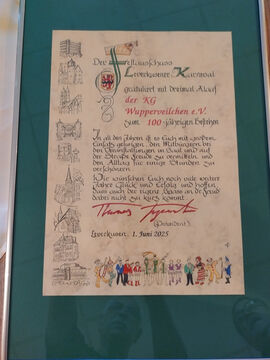 Der Festausschuss
Leverkusener Karneval
gratuliert mit dreimal Alaaf
der KG
Wupperveilchen e.V.
zum 100-jährigen Bestehen
In all den Jahren ist es Euch mit großem
Einsatz gelungen, den Mitbürgern bei
den Veranstaltungen im Saal und auf
der Straße Freude zu vermitteln und
den Alltag für einige Stunden zu
verschönern.
Wir wünschen Euch noch viele weitere
Jahre Glück und Erfolg und hoffen,
dass auch der eigene Spass an de Freud
dabei nicht zu kurz kommt.
(Präsident)
Leverkusen, 1. Juni 2025